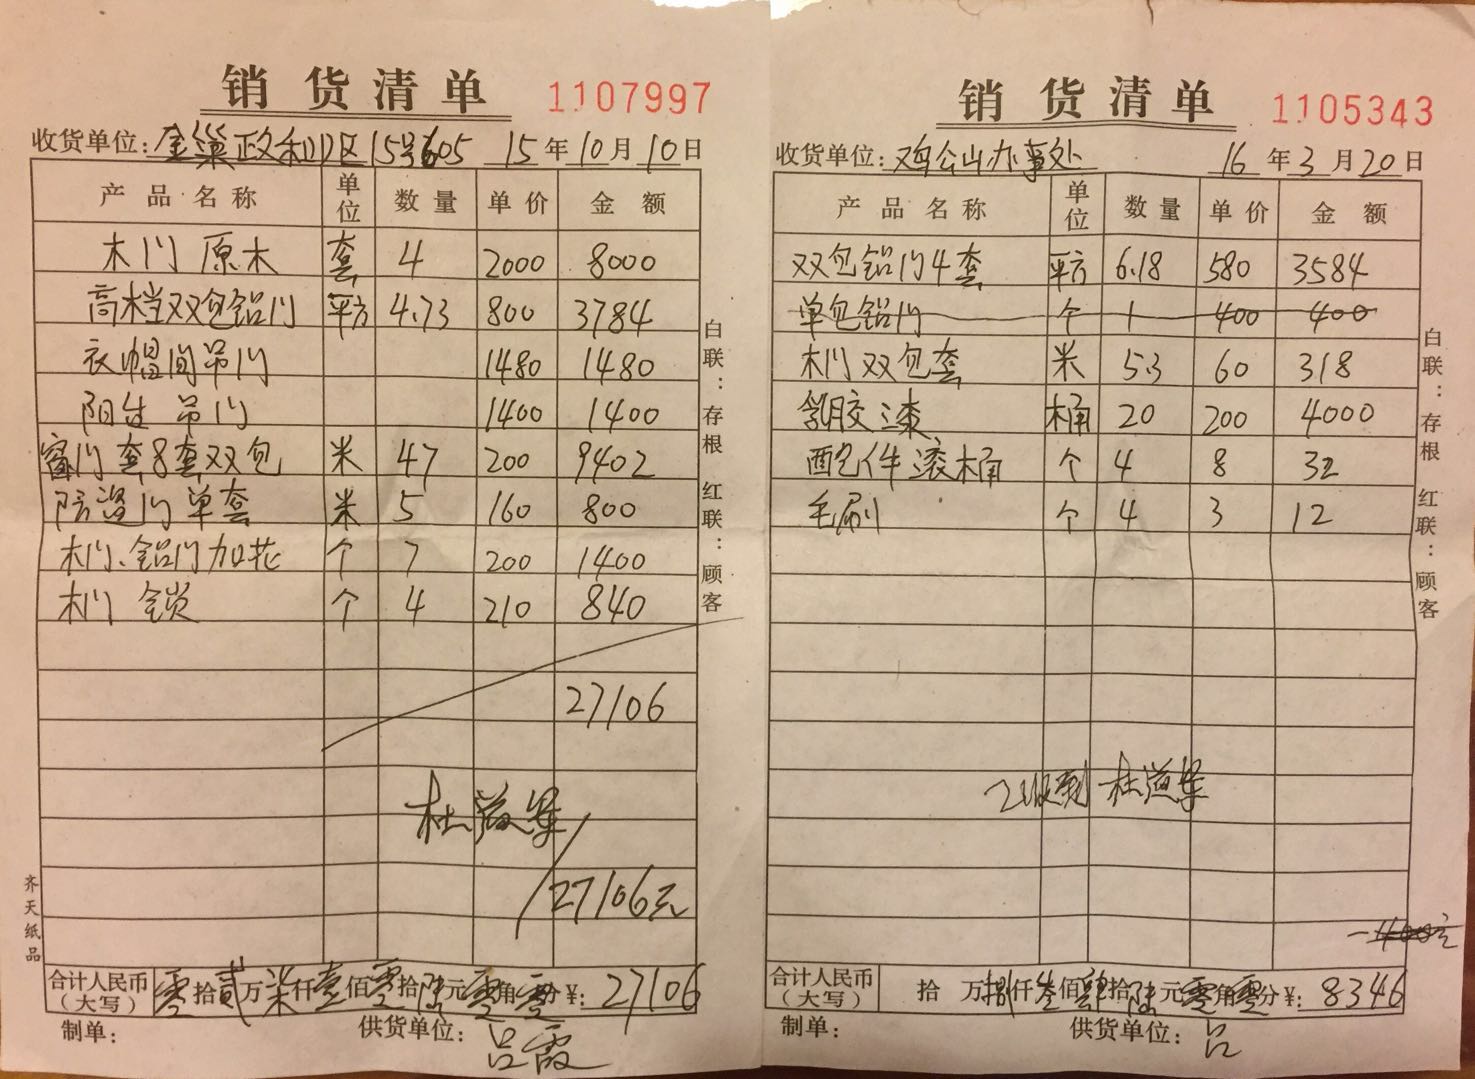 销货清单 1107997
收货单位: 金巢政和小区15号605 15年10月10日
产品名称 单位 数量 单价 金额
木门 原木 套 4 2000 8000
高档双包铝门 平方 4.73 800 3784
衣帽间吊门 1480 1480
阳台 吊门 1400 1400
窗门套8套双包 米 47 200 9402
防盗门单套 米 5 160 800
木门、铝门加花 个 7 200 1400
木门 锁 个 4 210 840
27106
27106元
合计人民币(大写) 零拾贰万柒仟壹佰零拾陆元零角零分¥: 27106
制单: 供货单位: 吕霞
白联:存根 红联:顾客
齐天纸品
销货清单 1105343
收货单位: 鸡公山办事处 16年3月20日
产品名称 单位 数量 单价 金额
双包铝门4套 平方 6.18 580 3584
单包铝门 个 1 400 400
木门双包套 米 5.3 60 318
乳胶漆 桶 20 200 4000
配件滚桶 个 4 8 32
毛刷 个 4 3 12
已收到
-400元
合计人民币(大写) 拾 万捌仟叁佰肆拾陆元零角零分¥: 8346
制单: 供货单位: 吕
白联:存根 红联:顾客